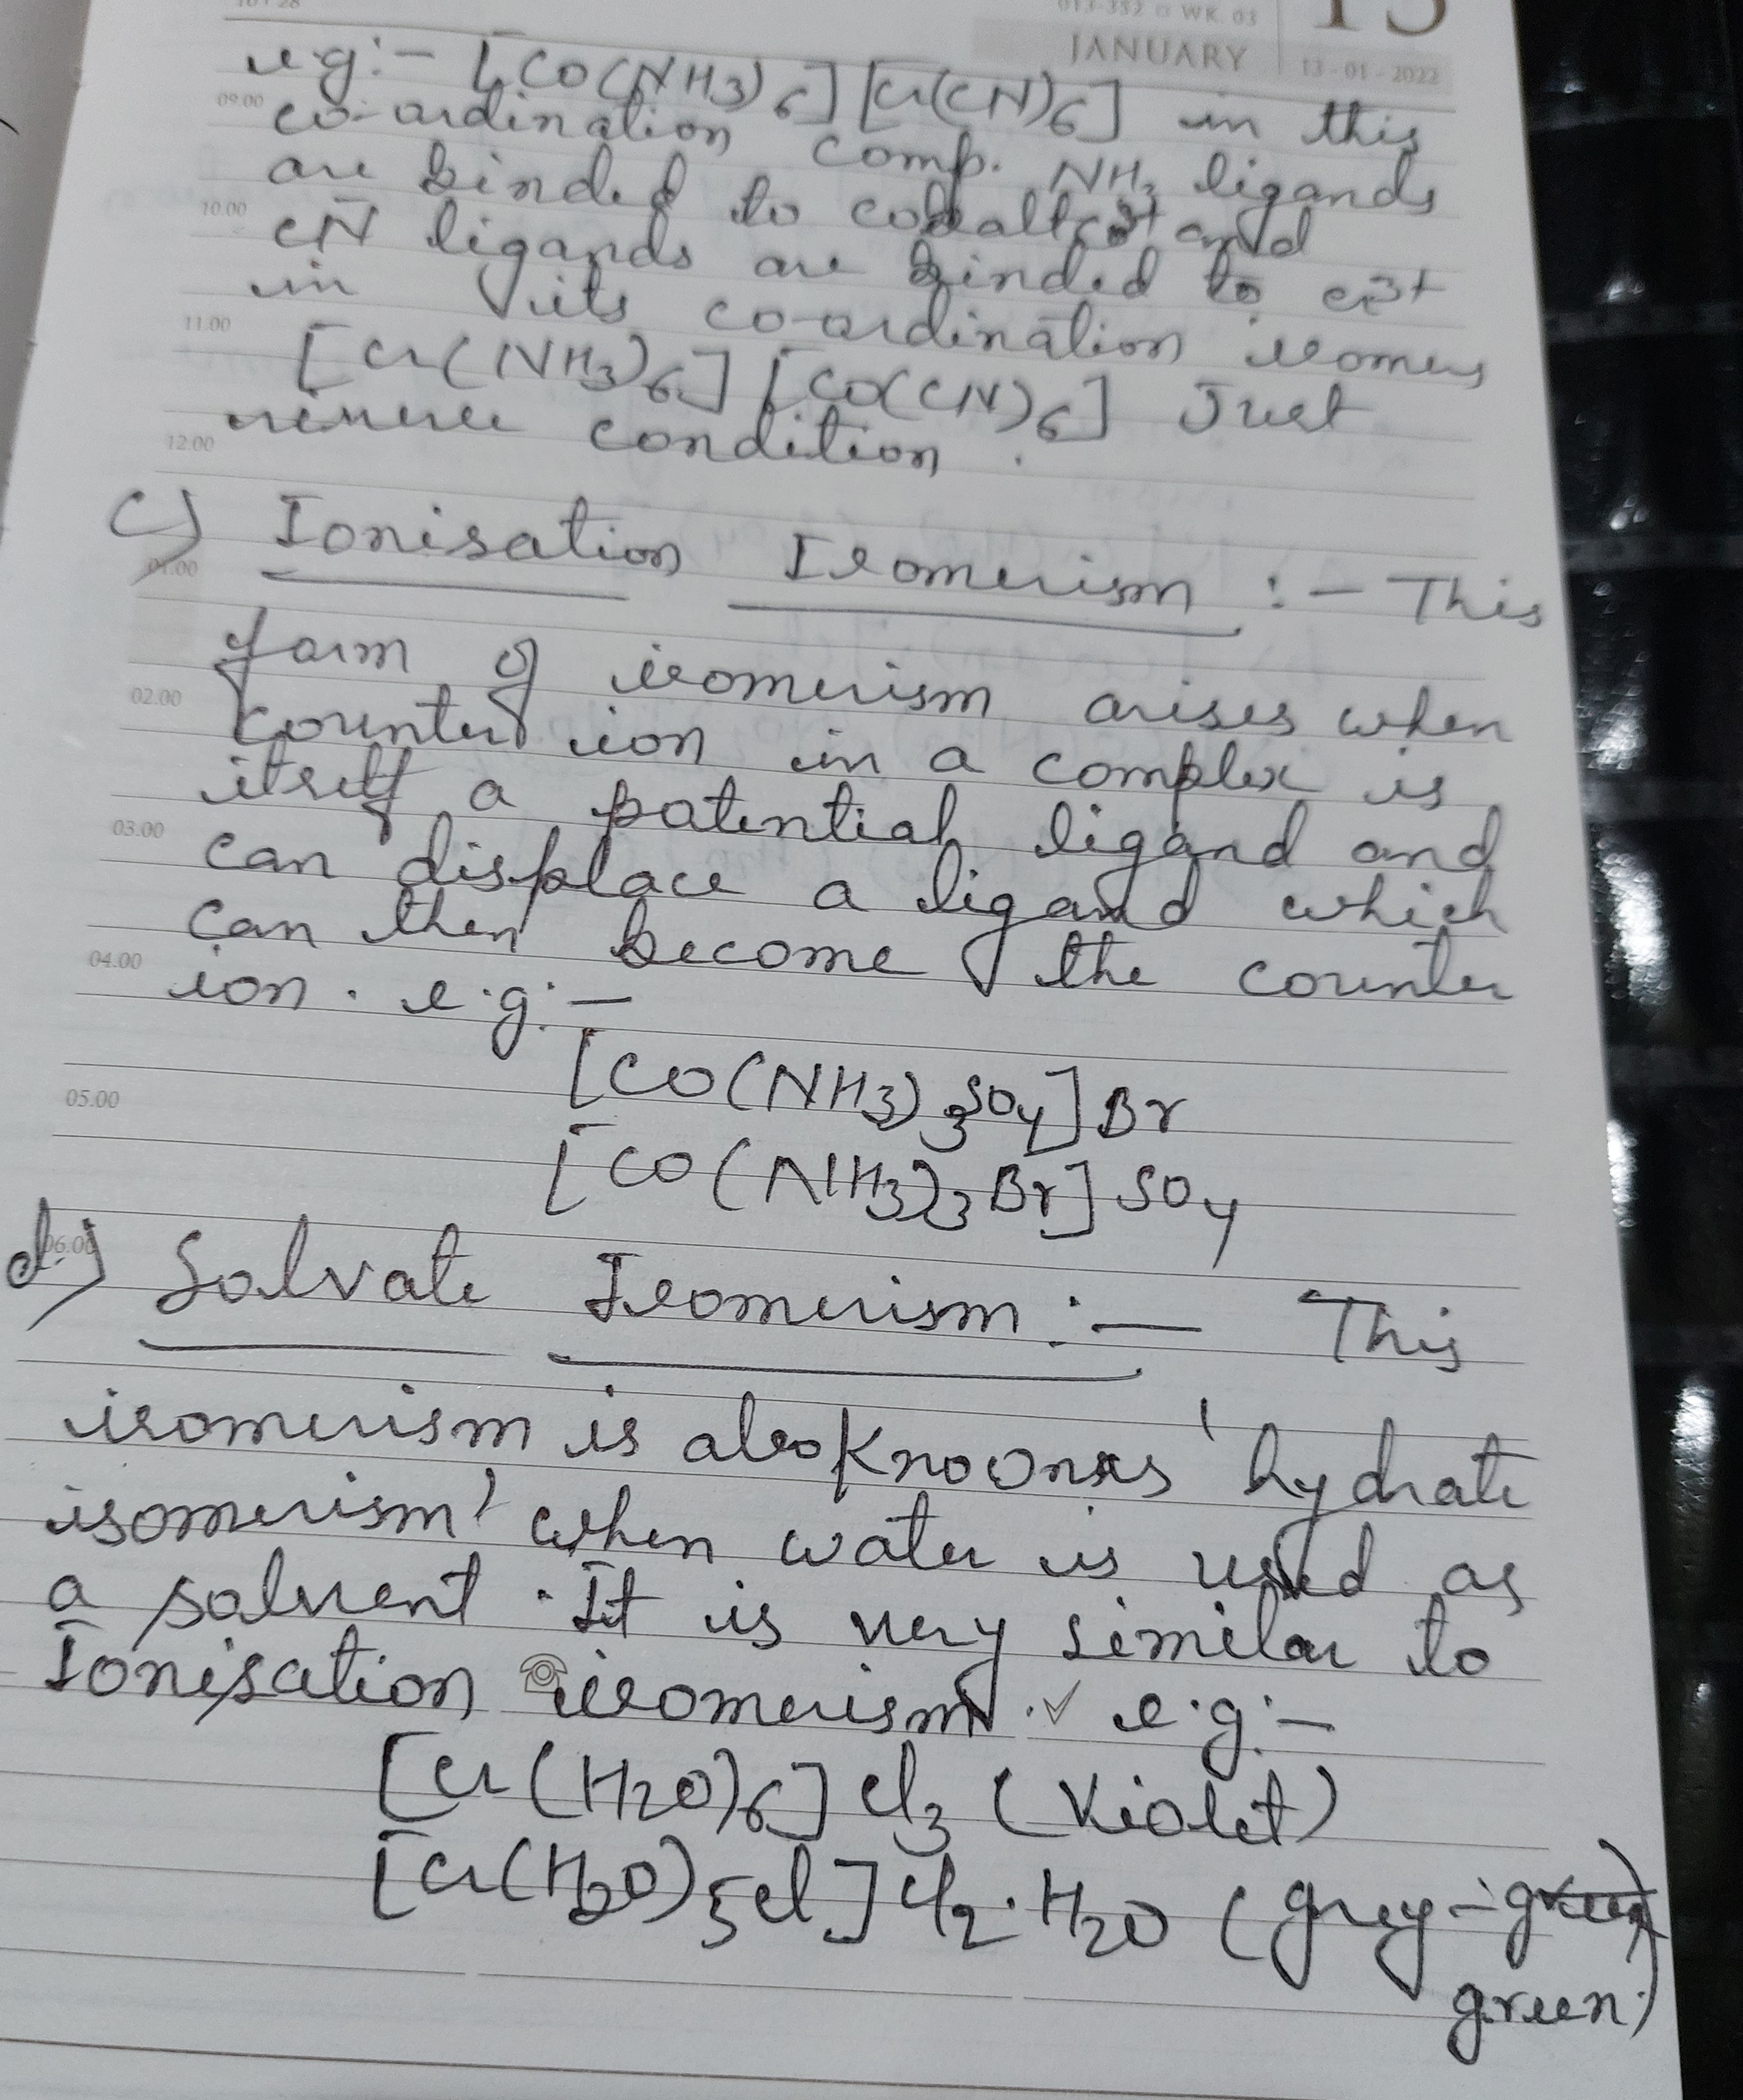 013-352 WK. 03
13
JANUARY
13 - 01 - 2022
e.g:- [Co(NH3)6][Cr(CN)6] in this
09.00
co-ordination comp. NH3 ligands
are binded to cobalt 3+ and
10.00
CN ligands are binded to Cr3+
in its co-ordination isomers
11.00
[Cr(NH3)6][Co(CN)6] Just
reverse condition.
12.00
c) Ionisation Isomerism :- This
01.00
form of isomerism arises when
02.00
counter ion in a complex is
itself a potential ligand and
03.00
can displace a ligand which
can then become the counter
04.00
ion. e.g:-
[CO(NH3)3SO4]Br
05.00
[CO(NH3)3Br]SO4
06.00
d.) Solvate Isomerism :- This
isomerism is also known as 'hydrate
isomerism' when water is used as
a solvent. It is very similar to
Ionisation isomerism. e.g:-
[Cr(H2O)6]Cl3 (Violet)
[Cr(H2O)5Cl]Cl2.H2O (grey-green)
green)